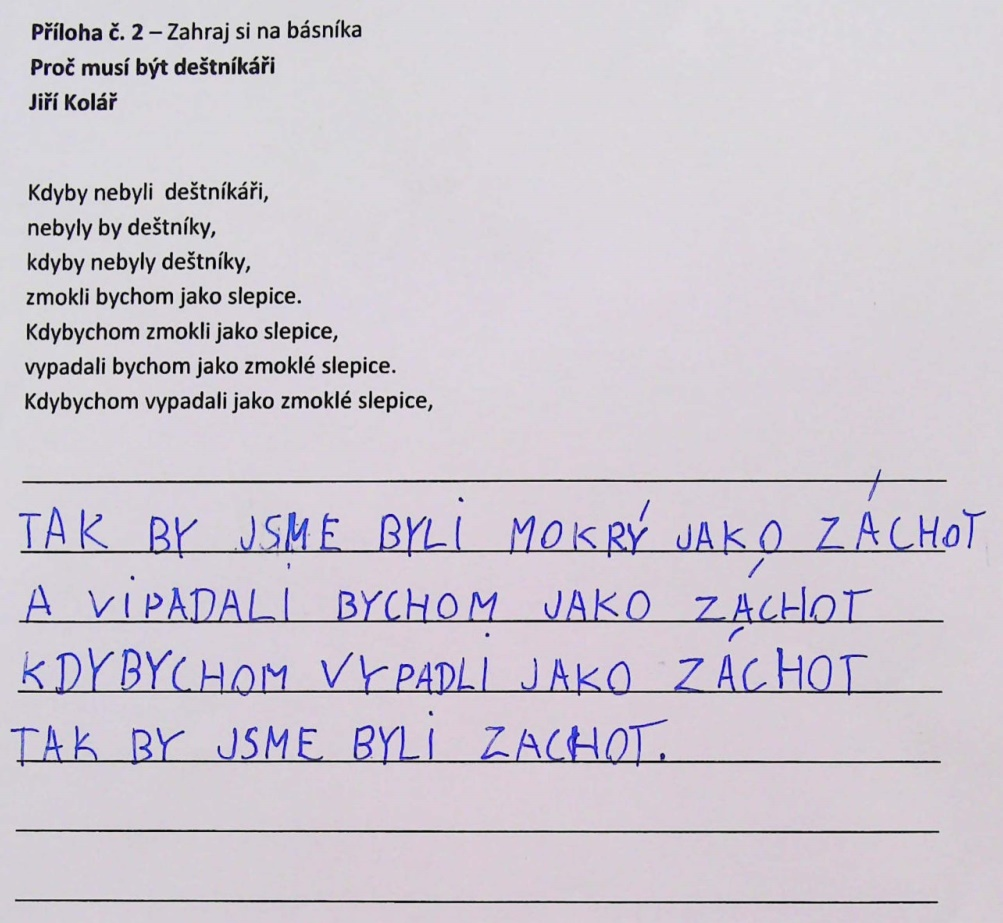 Příloha č. 2 – Zahraj si na básníka
Proč musí být deštníkáři
Jiří Kolář
Kdyby nebyli deštníkáři,
nebyly by deštníky,
kdyby nebyly deštníky,
zmokli bychom jako slepice.
Kdybychom zmokli jako slepice,
vypadali bychom jako zmoklé slepice.
Kdybychom vypadali jako zmoklé slepice,
TAK BY JSME BYLI MOKRÝ JAKO ZÁCHOT
A VIPADALI BYCHOM JAKO ZÁCHOT
KDYBYCHOM VYPADLI JAKO ZÁCHOT
TAK BY JSME BYLI ZACHOT.